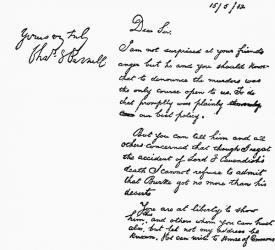 15/5/82
Dear Sir,
I am not surprised at your friends
anger but he and you should know
that to denounce the murders was
the only course open to us. To do
that promptly was plainly
our best policy.
But you can tell him and all
others concerned that though I regret
the accident of Lord F Cavendish's
death I cannot refuse to admit
that Burke got no more than his
deserts
You are at liberty to show
him this, and others whom you can trust
also, but let not my address be
known. He can write to House of Commons
Yours very truly
Chas. S Parnell